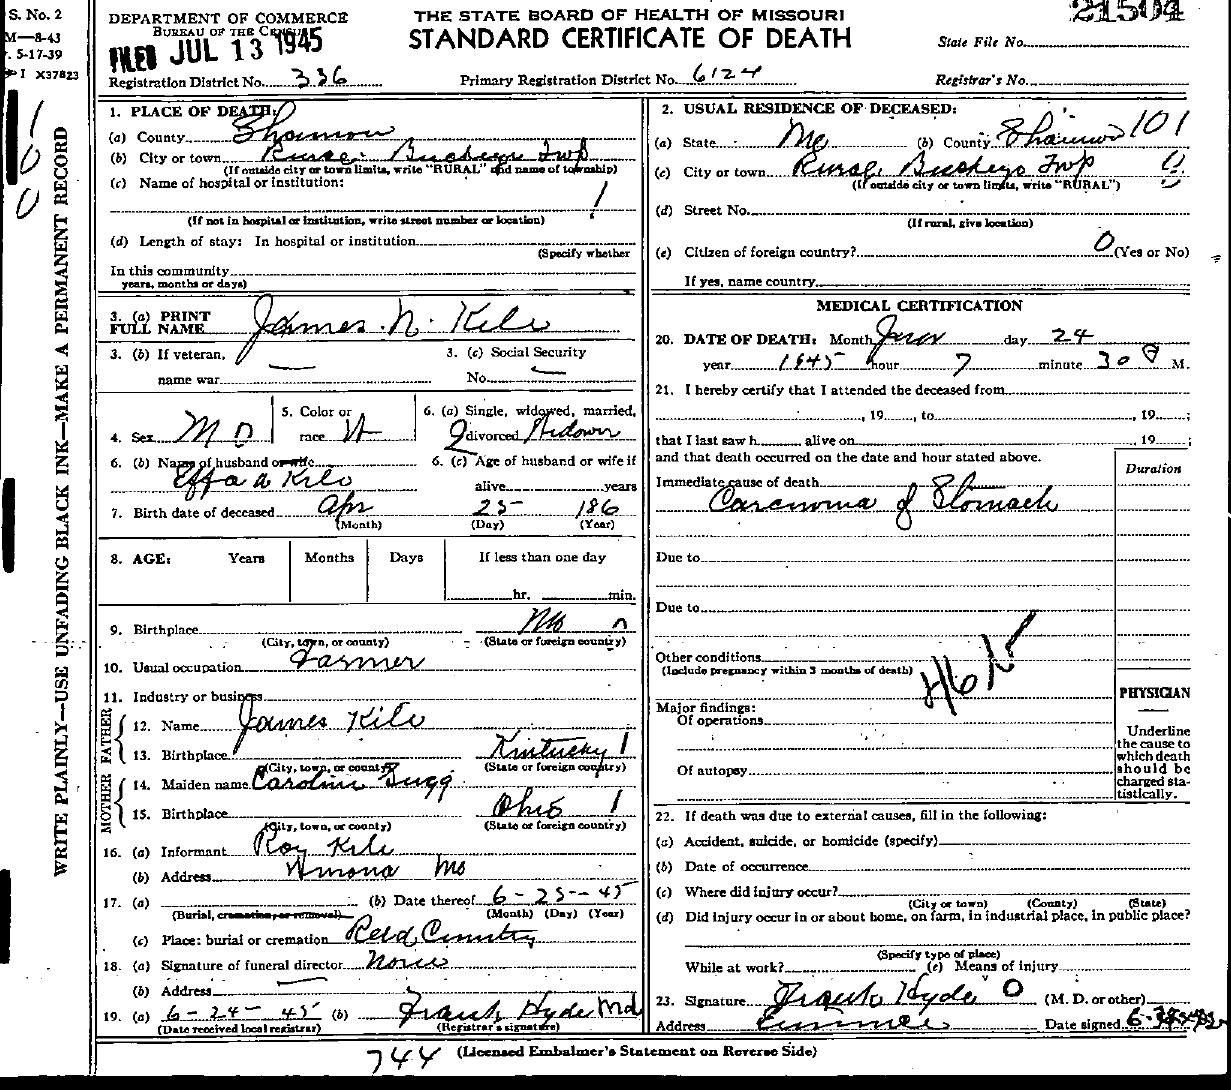 S. No. 2
M—8-43
5-17-39
I X37823
DEPARTMENT OF COMMERCE
BUREAU OF THE CENSUS
FILED JUL 13 1945
Registration District No. 336
THE STATE BOARD OF HEALTH OF MISSOURI
STANDARD CERTIFICATE OF DEATH
Primary Registration District No. 6124
21504
State File No.
Registrar's No.
WRITE PLAINLY—USE UNFADING BLACK INK—MAKE A PERMANENT RECORD
1. PLACE OF DEATH:
(a) County Shannon
(b) City or town Rural Twp
(If outside city or town limits, write "RURAL" and name of township)
(c) Name of hospital or institution:
(If not in hospital or institution, write street number or location)
(d) Length of stay: In hospital or institution
(Specify whether
In this community
years, months or days)
3. (a) PRINT
FULL NAME James N. Kile
3. (b) If veteran,
name war
3. (c) Social Security
No.
4. Sex M
5. Color or
race W
6. (a) Single, widowed, married,
divorced Widower
6. (b) Name of husband or wife
Effa Kile
6. (c) Age of husband or wife if
alive years
7. Birth date of deceased Apr 25 186
(Month) (Day) (Year)
8. AGE: Years Months Days If less than one day
hr. min.
9. Birthplace Mo
(City, town, or county) (State or foreign country)
10. Usual occupation Farmer
11. Industry or business
FATHER
12. Name James Kile
13. Birthplace Kintucky
(City, town, or county) (State or foreign country)
MOTHER
14. Maiden name Caroline
15. Birthplace Ohio
(City, town, or county) (State or foreign country)
16. (a) Informant Roy Kile
(b) Address Winona Mo
17. (a) (b) Date thereof 6-25-45
(Burial, cremation, or removal) (Month) (Day) (Year)
(c) Place: burial or cremation
18. (a) Signature of funeral director None
(b) Address
19. (a) 6-24-45 (b) Frank Hyde Md
(Date received local registrar) (Registrar's signature)
2. USUAL RESIDENCE OF DECEASED:
(a) State Mo (b) County Shannon 101
(c) City or town Rural Twp
(If outside city or town limits, write "RURAL")
(d) Street No.
(If rural, give location)
(e) Citizen of foreign country? 0 (Yes or No)
If yes, name country
MEDICAL CERTIFICATION
20. DATE OF DEATH: Month June day 24
year 1945 hour 7 minute 30 P M.
21. I hereby certify that I attended the deceased from
, 19 , to , 19 ;
that I last saw h alive on , 19 ;
and that death occurred on the date and hour stated above.
Duration
Immediate cause of death
Carcinoma of Stomach
Due to
Due to
Other conditions
(Include pregnancy within 3 months of death)
Major findings:
Of operations
Of autopsy
PHYSICIAN
Underline
the cause to
which death
should be
charged sta-
tistically.
22. If death was due to external causes, fill in the following:
(a) Accident, suicide, or homicide (specify)
(b) Date of occurrence
(c) Where did injury occur?
(City or town) (County) (State)
(d) Did injury occur in or about home, on farm, in industrial place, in public place?
(Specify type of place)
While at work? (e) Means of injury
23. Signature Frank Hyde (M. D. or other)
Address Eminence Date signed
744 (Licensed Embalmer's Statement on Reverse Side)